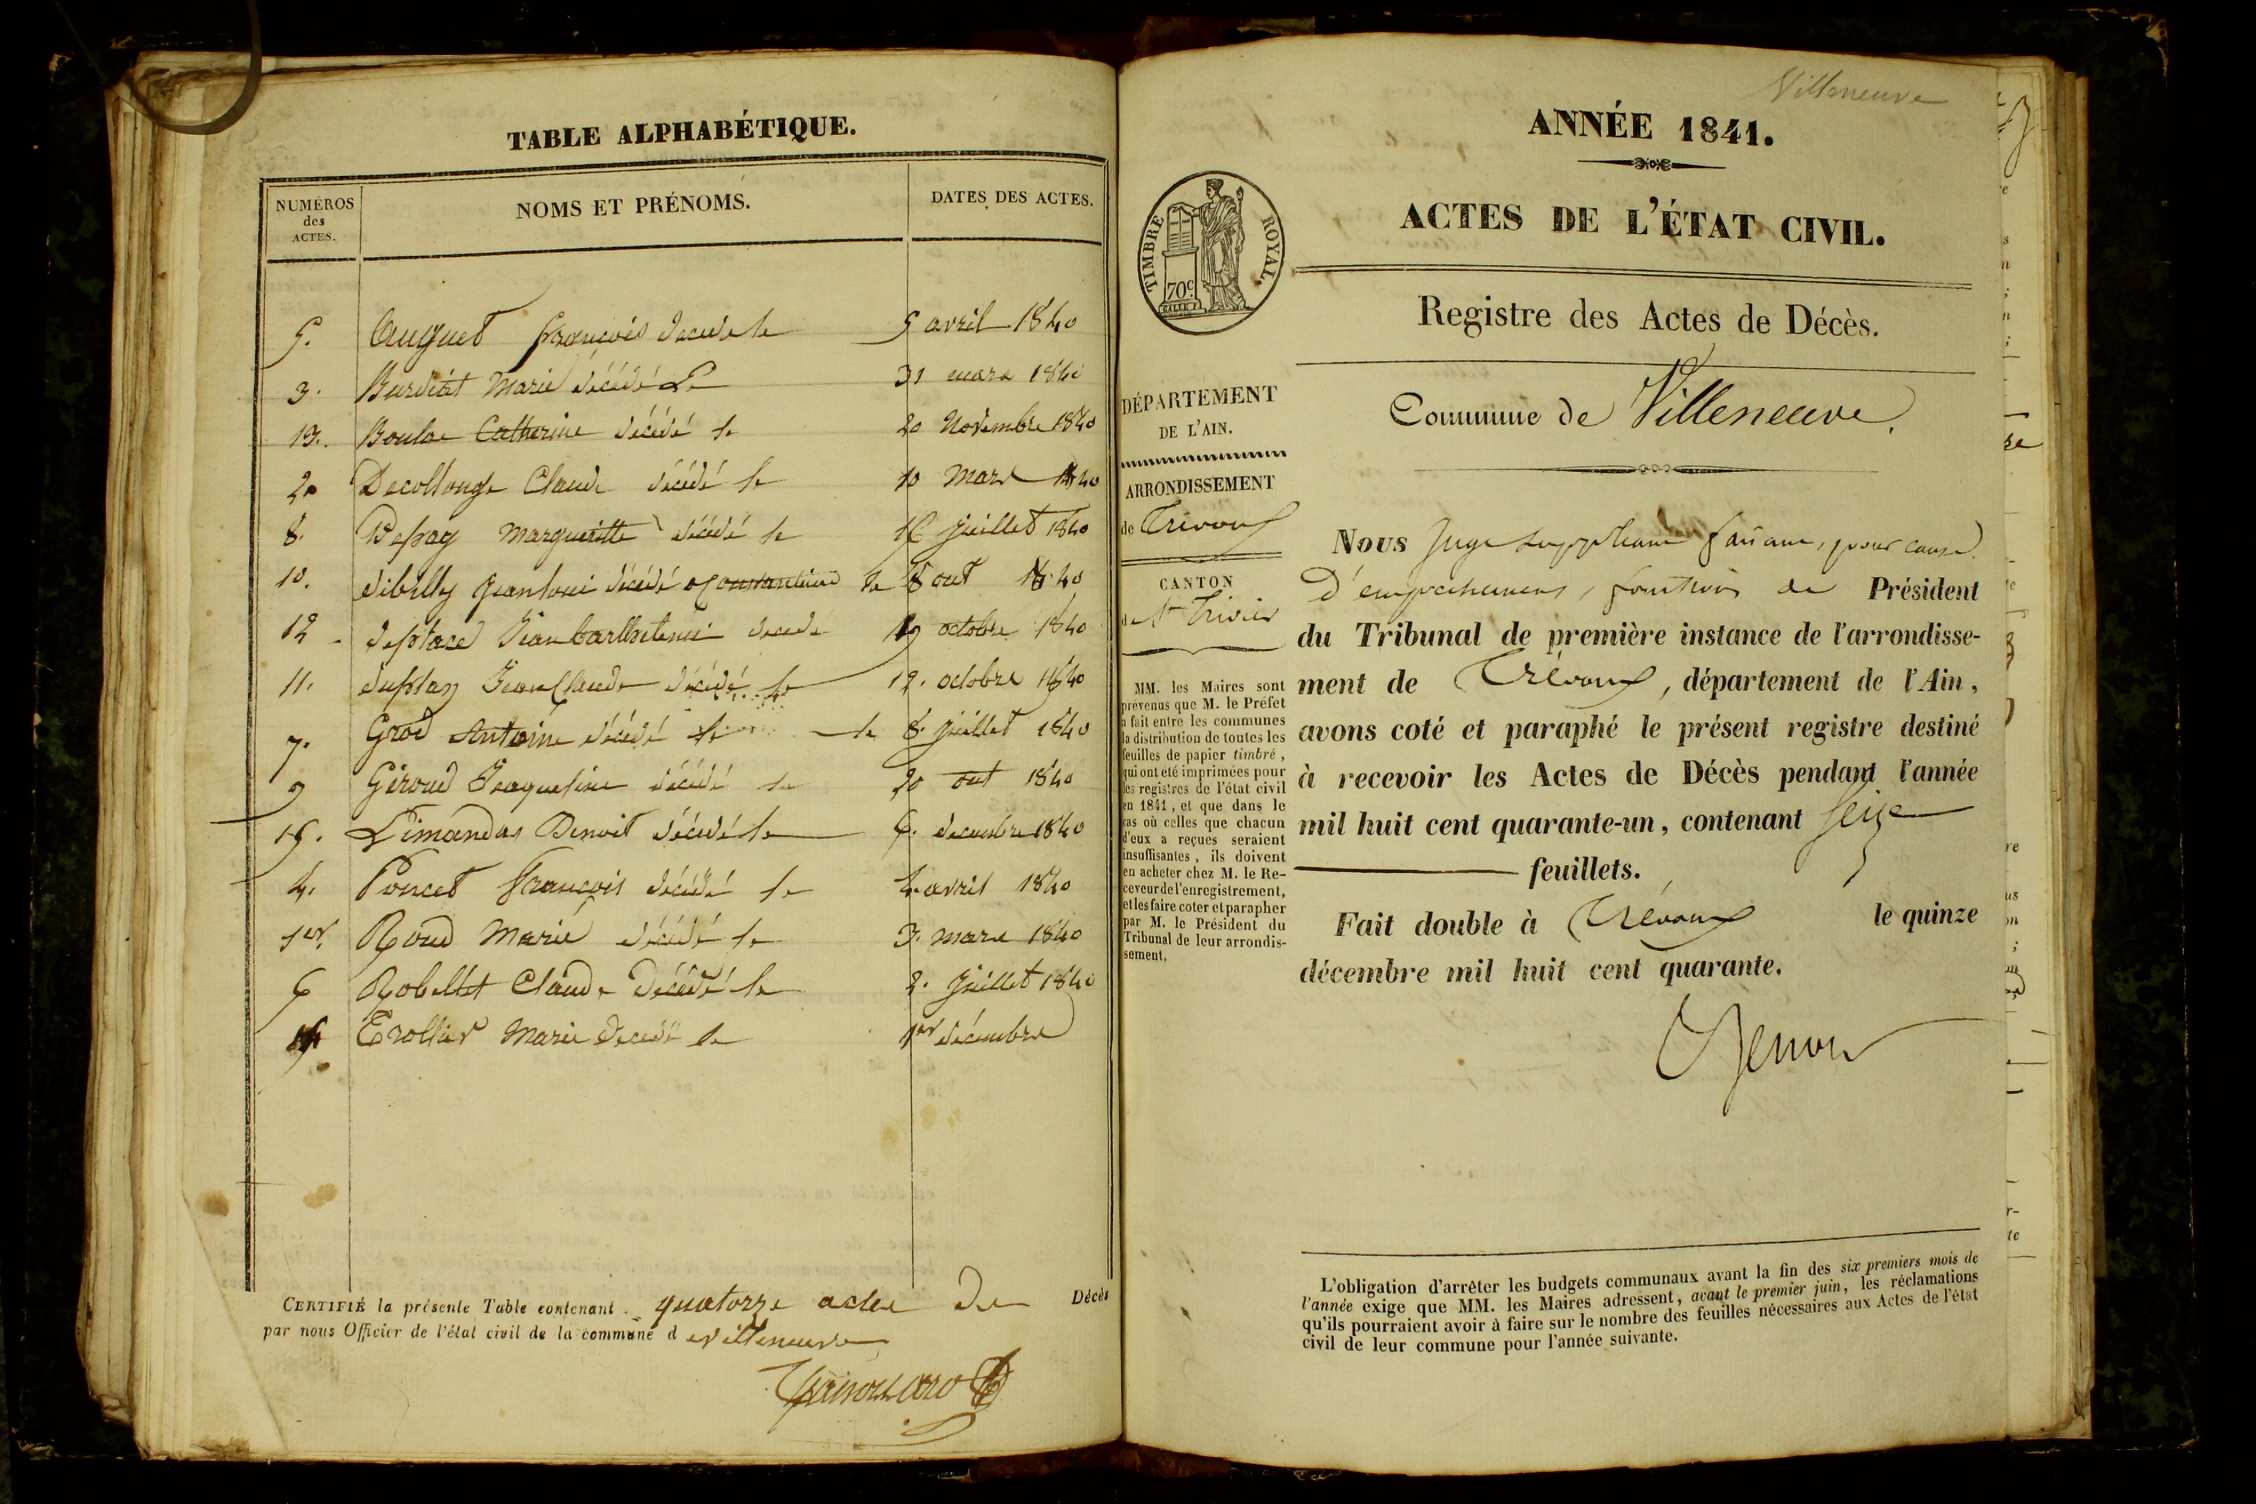 TABLE ALPHABÉTIQUE.
NUMÉROS
des
ACTES.
NOMS ET PRÉNOMS.
DATES DES ACTES.
5. Auguet françois décédé le 5 avril 1840
3. Burdiat Marie décédé Le 31 mars 1840
13. Catherine décédé le 20 Novembre 1840
2. Decollonge Claude décédé le 10 Mars 1840
8. Margueritte décédé le 16 juillet 1840
10. décédé le 8 out 1840
12 decede 19 octobre 1840
11. Jean Claude décédé le 12. octobre 1840
7. Antoine décédé le 8. juillet 1840
9 Giroud Jaqueline décédé le 20 out 1840
15. Limandas Benoit décédé le 6. decembre 1840
4. Poncet françois décédé le 4 avril 1840
1er. Roud Marie décédé le 3. mars 1840
6 Robellet Claude Décédé le 2. juillet 1840
Marie Decedé le 1er décembre
CERTIFIÉ la présente Table contenant quatorze actes De Décès
par nous Officier de l'état civil de la commune d villeneuve
Villeneuve
ANNÉE 1841.
ACTES DE L'ÉTAT CIVIL.
TIMBRE ROYAL.
70c
Registre des Actes de Décès.
Commune de Villeneuve.
DÉPARTEMENT
DE L'AIN.
ARRONDISSEMENT
de Trévoux
CANTON
de St Trivier
MM. les Maires sont
prévenus que M. le Préfet
a fait entre les communes
la distribution de toutes les
feuilles de papier timbré,
qui ont été imprimées pour
les registres de l'état civil
en 1841, et que dans le
cas où celles que chacun
d'eux a reçues seraient
insuffisantes, ils doivent
en acheter chez M. le Re-
ceveur de l'enregistrement,
et les faire coter et parapher
par M. le Président du
Tribunal de leur arrondis-
sement.
Nous Juge suppléant faisant, pour cause
D'empêchement, fonctions de Président
du Tribunal de première instance de l'arrondisse-
ment de Trévoux, département de l'Ain,
avons coté et paraphé le présent registre destiné
à recevoir les Actes de Décès pendant l'année
mil huit cent quarante-un, contenant seize
feuillets.
Fait double à Trévoux le quinze
décembre mil huit cent quarante.
L'obligation d'arrêter les budgets communaux avant la fin des six premiers mois de
l'année exige que MM. les Maires adressent, avant le premier juin, les réclamations
qu'ils pourraient avoir à faire sur le nombre des feuilles nécessaires aux Actes de l'état
civil de leur commune pour l'année suivante.